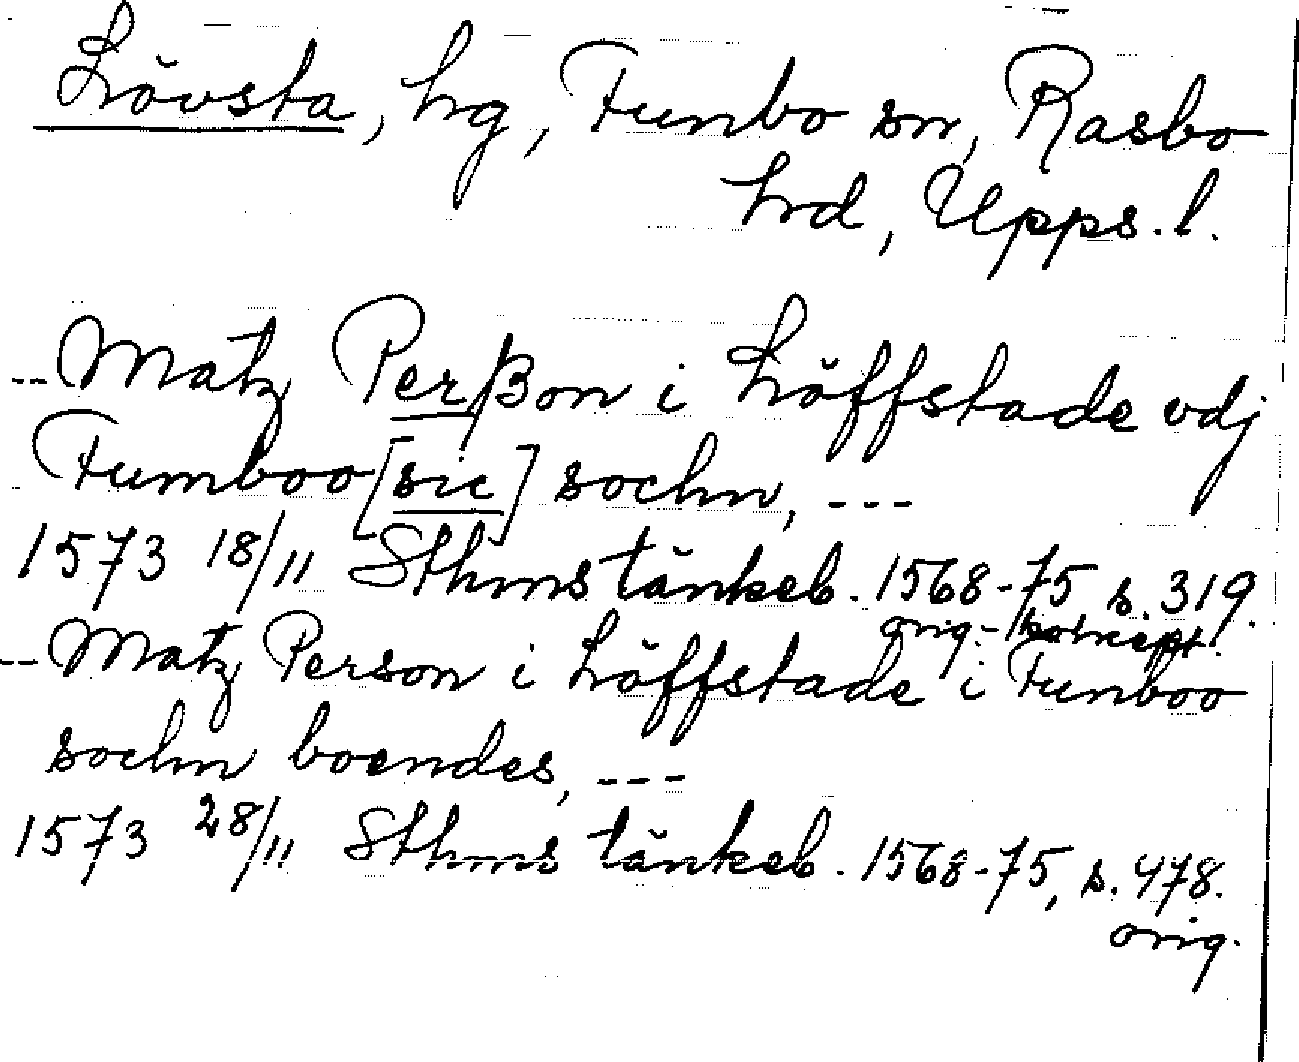 Lövsta, hg, Funbo sn, Rasbo
hrd, Upps. l.
-- Matz Per/ßon i Löffstade vdj
Fumboo [sic] sochn, ---
1573 18/11 Sthms tänkeb. 1568-75 s. 319.
orig.-koncept.
-- Matz Person i Löffstade i Funboo
sochn boendes, ---
1573 28/11 Sthms tänkeb. 1568-75, s. 478.
orig.